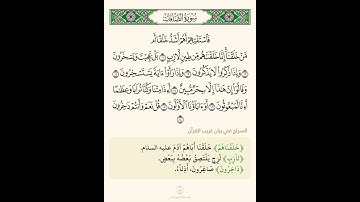 سورة الصافات
فاستفتهم أهم أشد خلقا أم
من خلقنا إنا خلقناهم من طين لازب ۝ بل عجبت ويسخرون
۝ وإذا ذكروا لا يذكرون ۝ وإذا رأوا آية يستسخرون
۝ وقالوا إن هذا إلا سحر مبين ۝ أءذا متنا وكنا ترابا وعظاما
أءنا لمبعوثون ۝ أوءاباؤنا الأولون ۝ قل نعم وأنتم داخرون
السراج في بيان غريب القرآن
﴿خَلَقْنَاهُمْ﴾ خَلَقْنَا أَبَاهُمْ آدَمَ عليه السلام.
﴿لَّازِبٍ﴾ لَزِجٍ يَلْتَصِقُ بَعْضُهُ بِبَعْضٍ.
﴿دَاخِرُونَ﴾ صَاغِرُونَ، أَذِلَّاءُ.